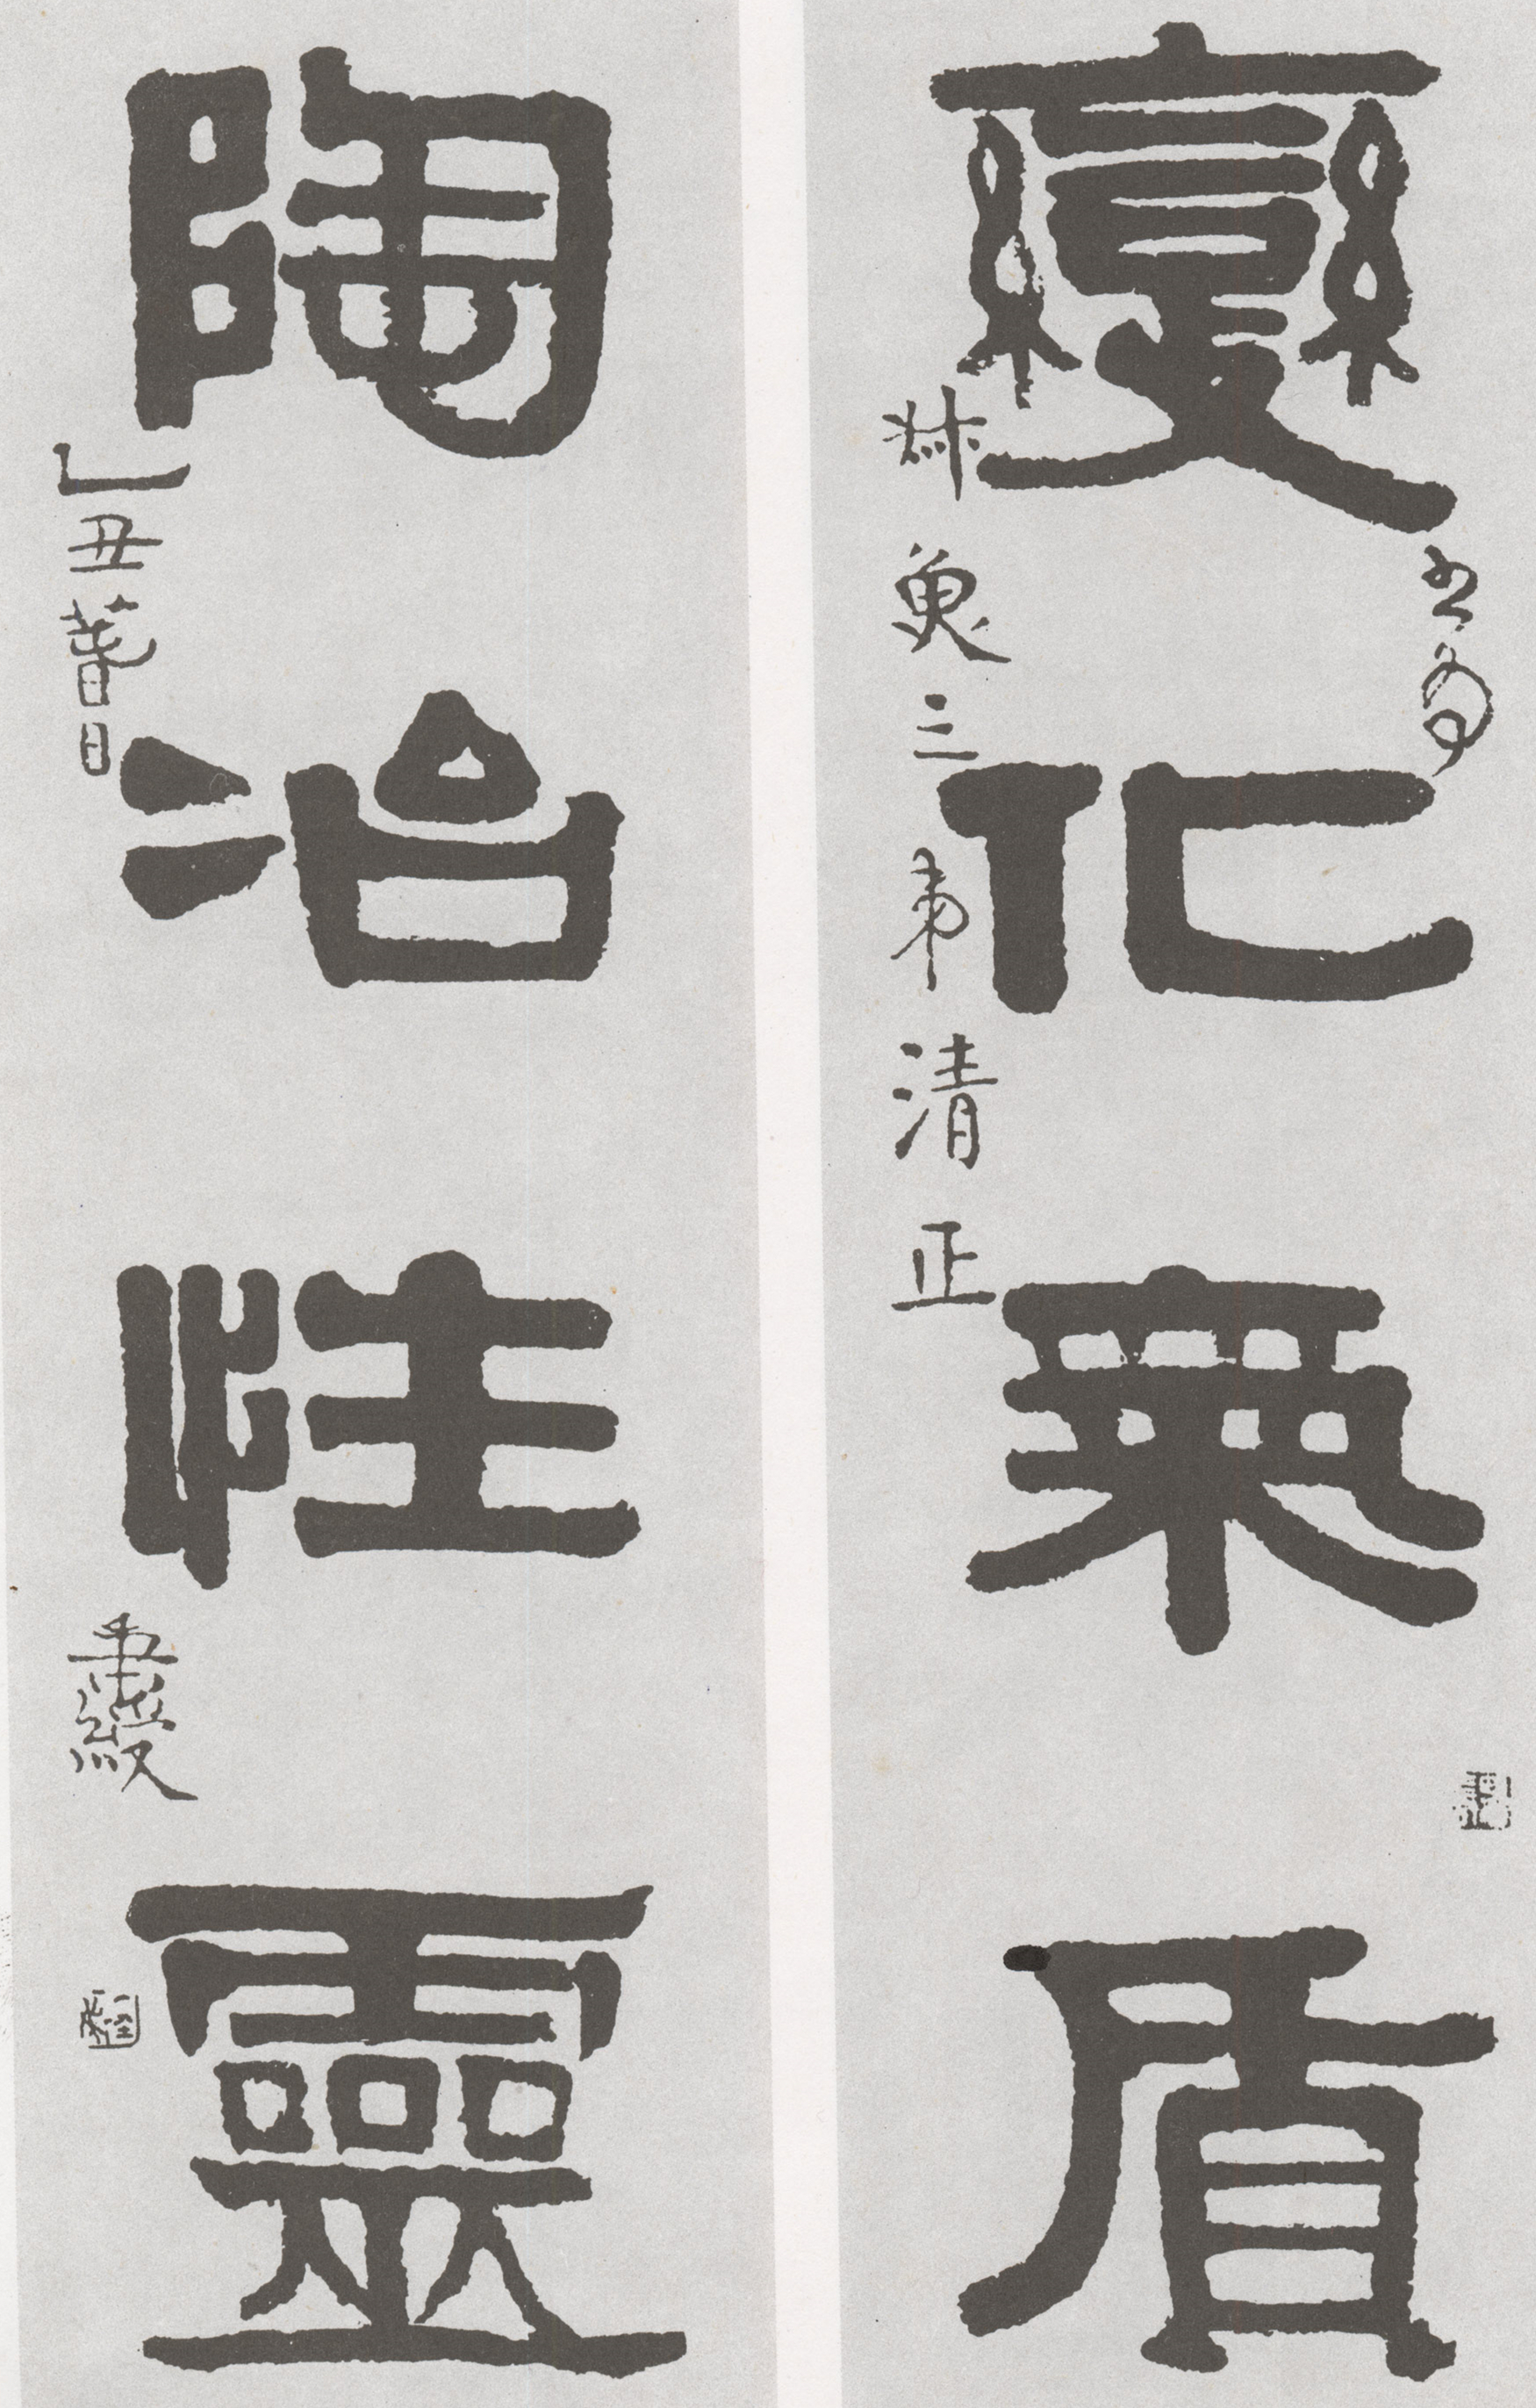 變化氣質
書為
三弟清正
陶冶性靈
乙丑春日